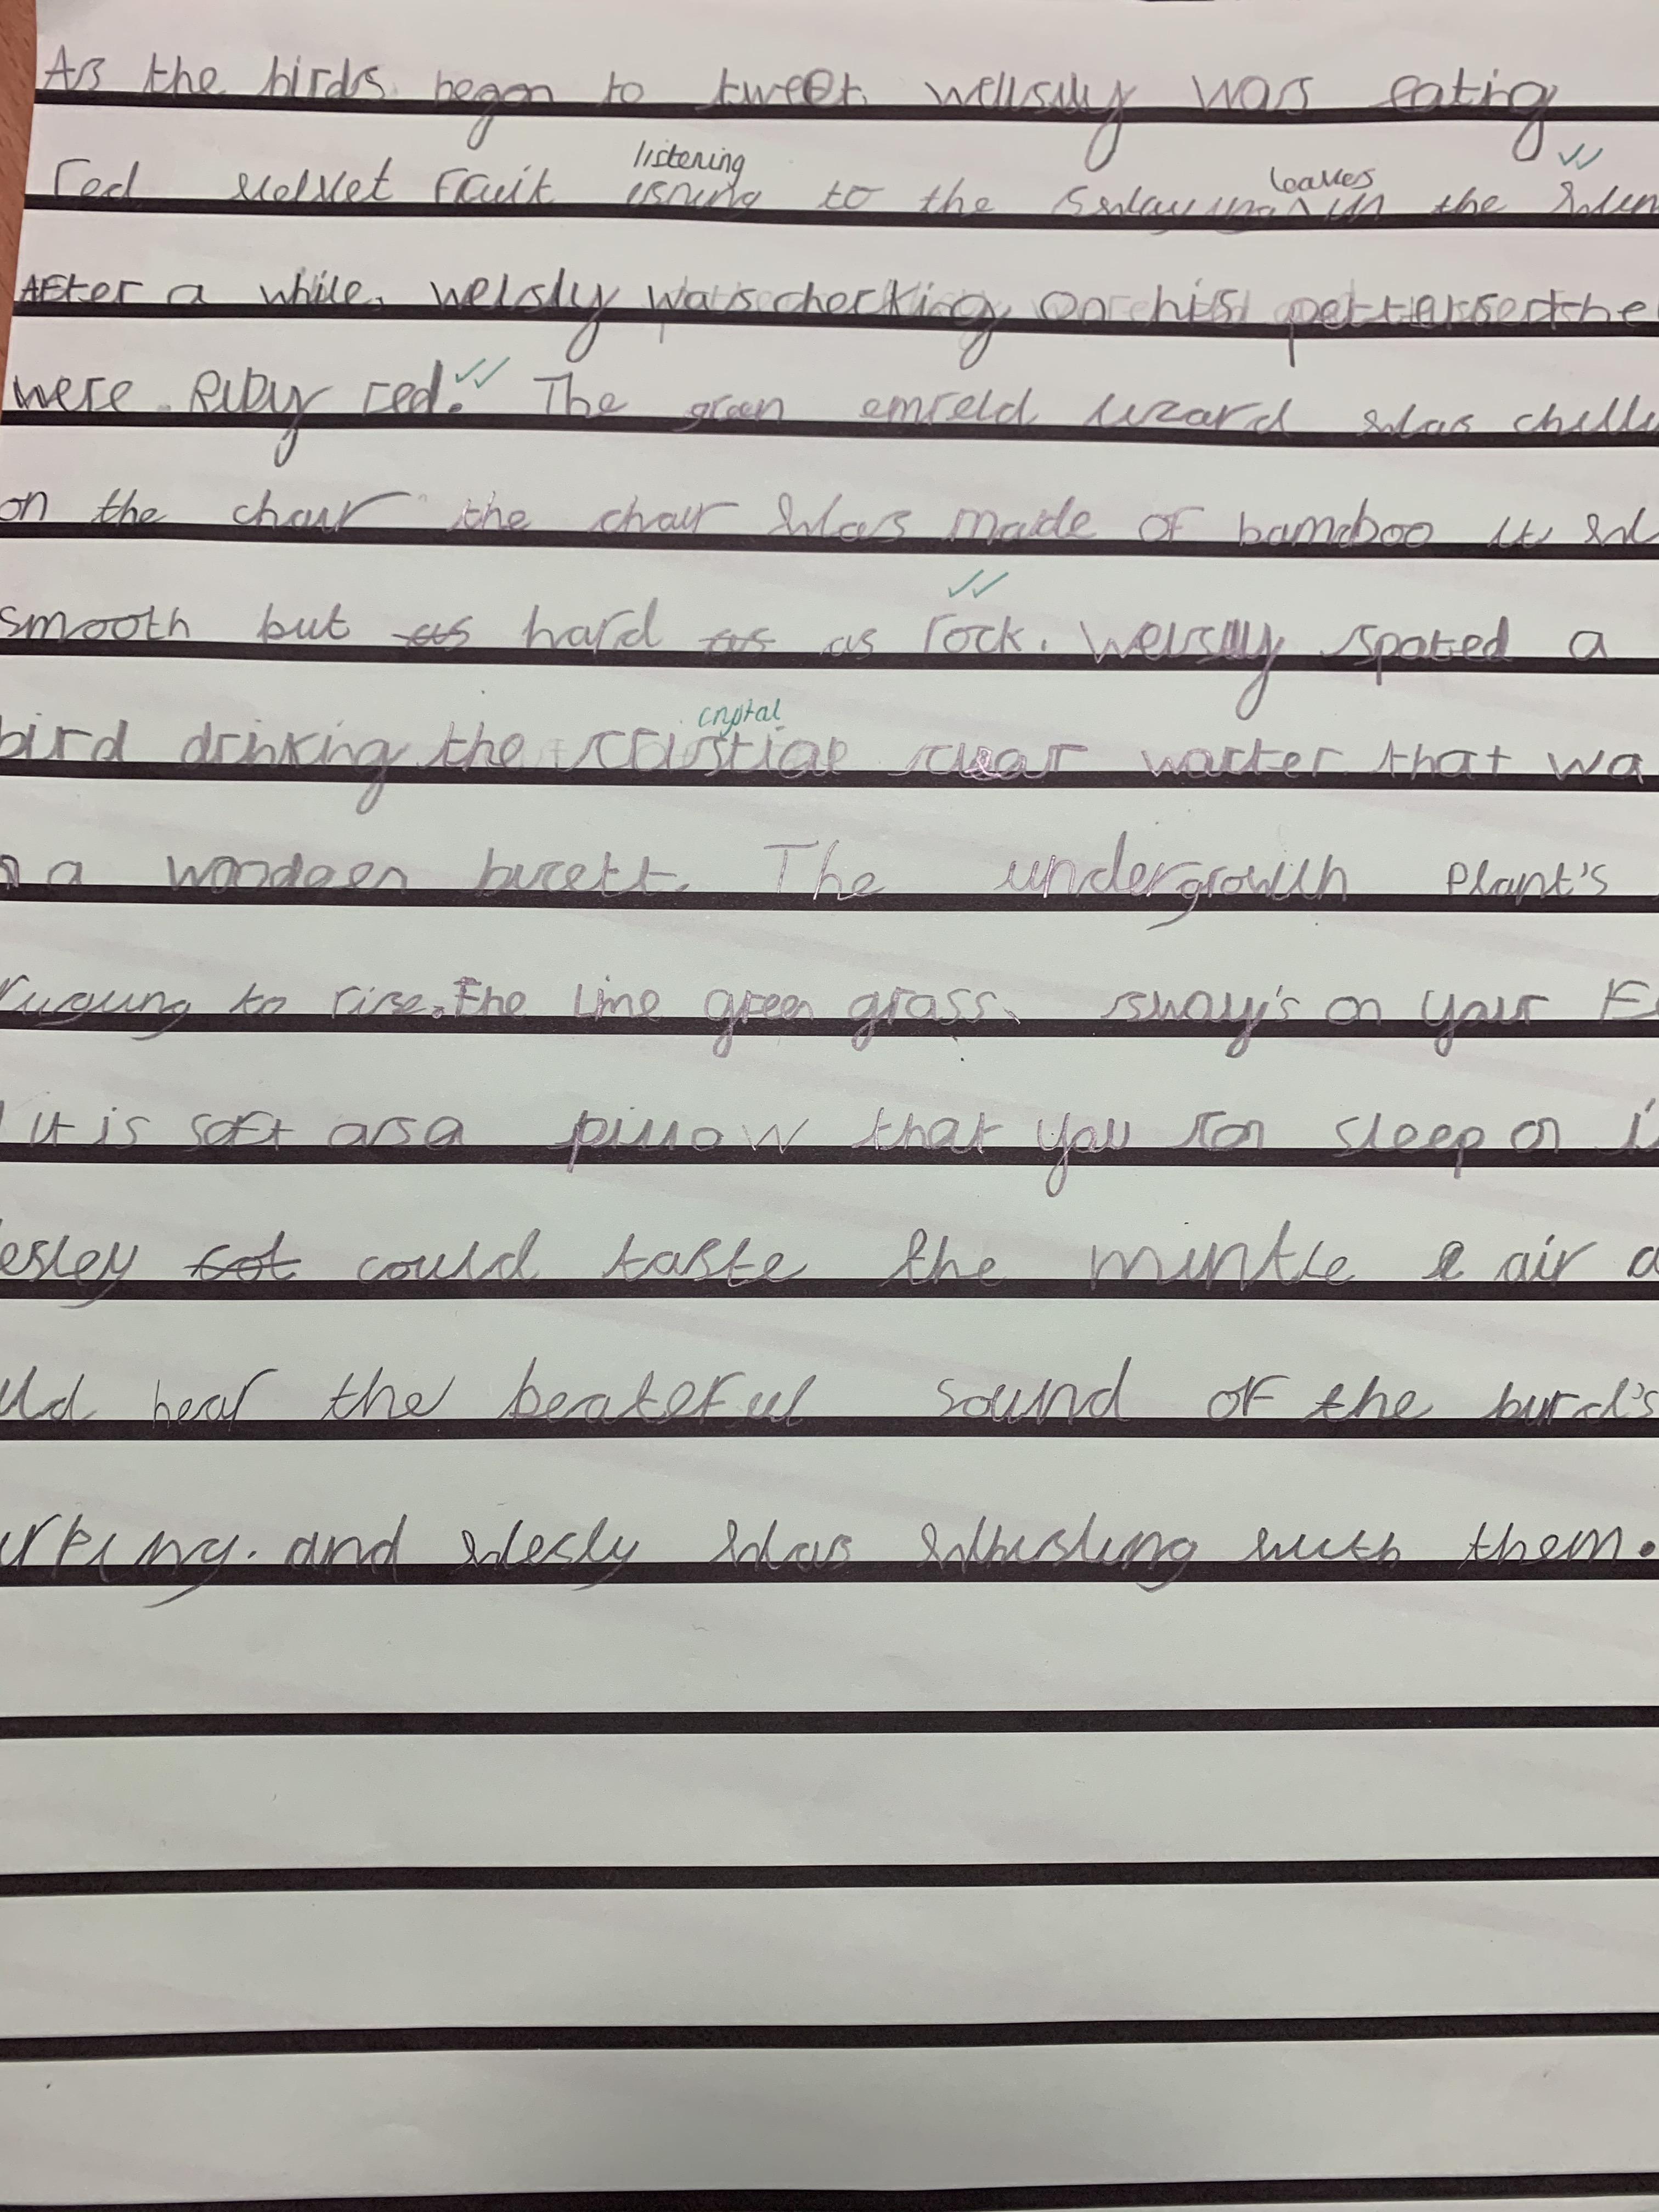 As the birds began to tweet. wellsly was eatig
red velvet fruit listening to the swaying leaves in the
After a while, welsly was checking on his the
were Ruby red. The green emreld lizard was
on the chair the chair was made of bamboo it
smooth but as hard as as rock. Welslly spoted a
bird drinking the crystal clear warter that wa
a woodoen bucett. The undergrowth plant's
to rise. The lime green grass. sway's on your
it is soft as a pillow that you can sleep on
esley cot could taste the mintie air a
uld hear the beatefeul sound of the burd's
and wesly was whisling with them.